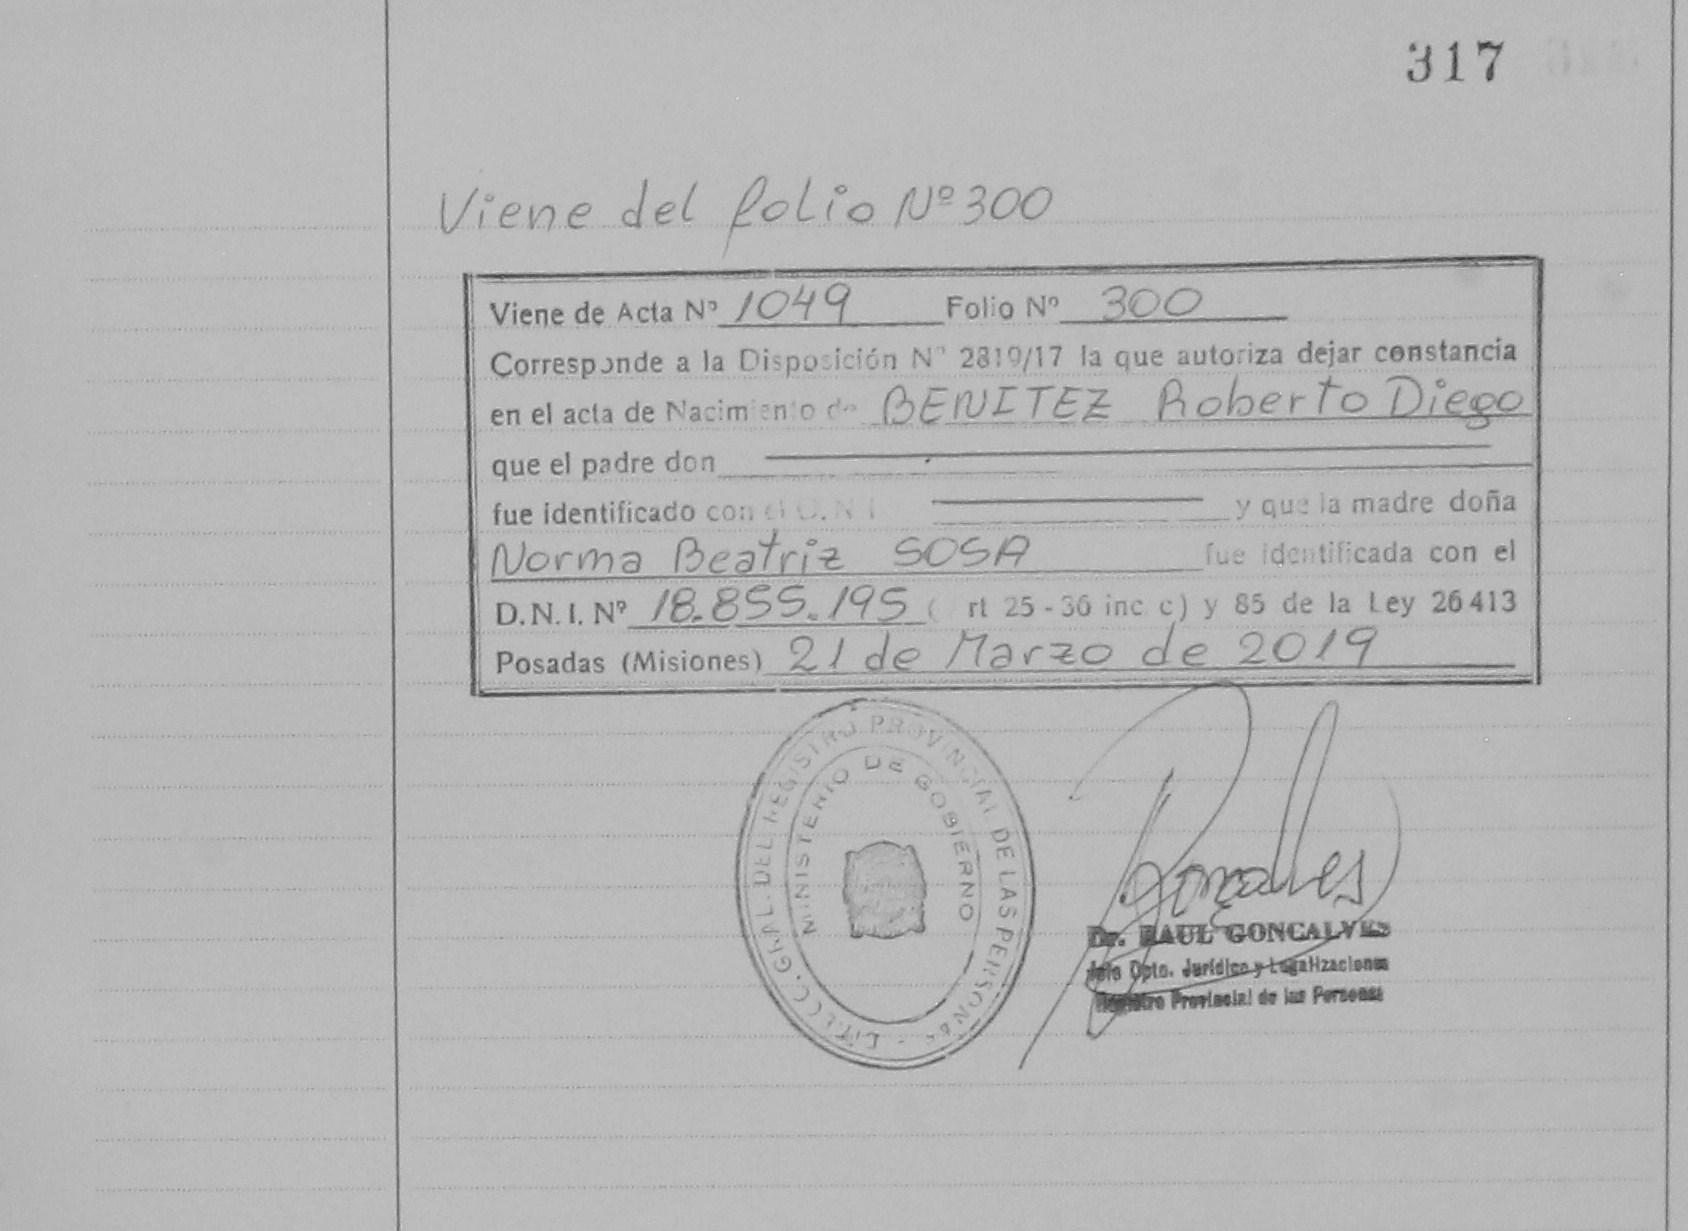 317
Viene del folio Nº 300
Viene de Acta Nº 1049 Folio Nº 300
Corresponde a la Disposición Nº 2819/17 la que autoriza dejar constancia
en el acta de Nacimiento de BENITEZ Roberto Diego
que el padre don
fue identificado con el D.N.I. y que la madre doña
Norma Beatriz SOSA fue identificada con el
D.N.I. Nº 18.855.195 ( rt 25 - 36 inc c) y 85 de la Ley 26413
Posadas (Misiones) 21 de Marzo de 2019
GRAL. DEL REGISTRO PROVINCIAL DE LAS PERSONAS
MINISTERIO DE GOBIERNO
Goncalves
Dr. RAUL GONCALVES
Jefe Dpto. Jurídico y Legalizaciones
Registro Provincial de las Personas